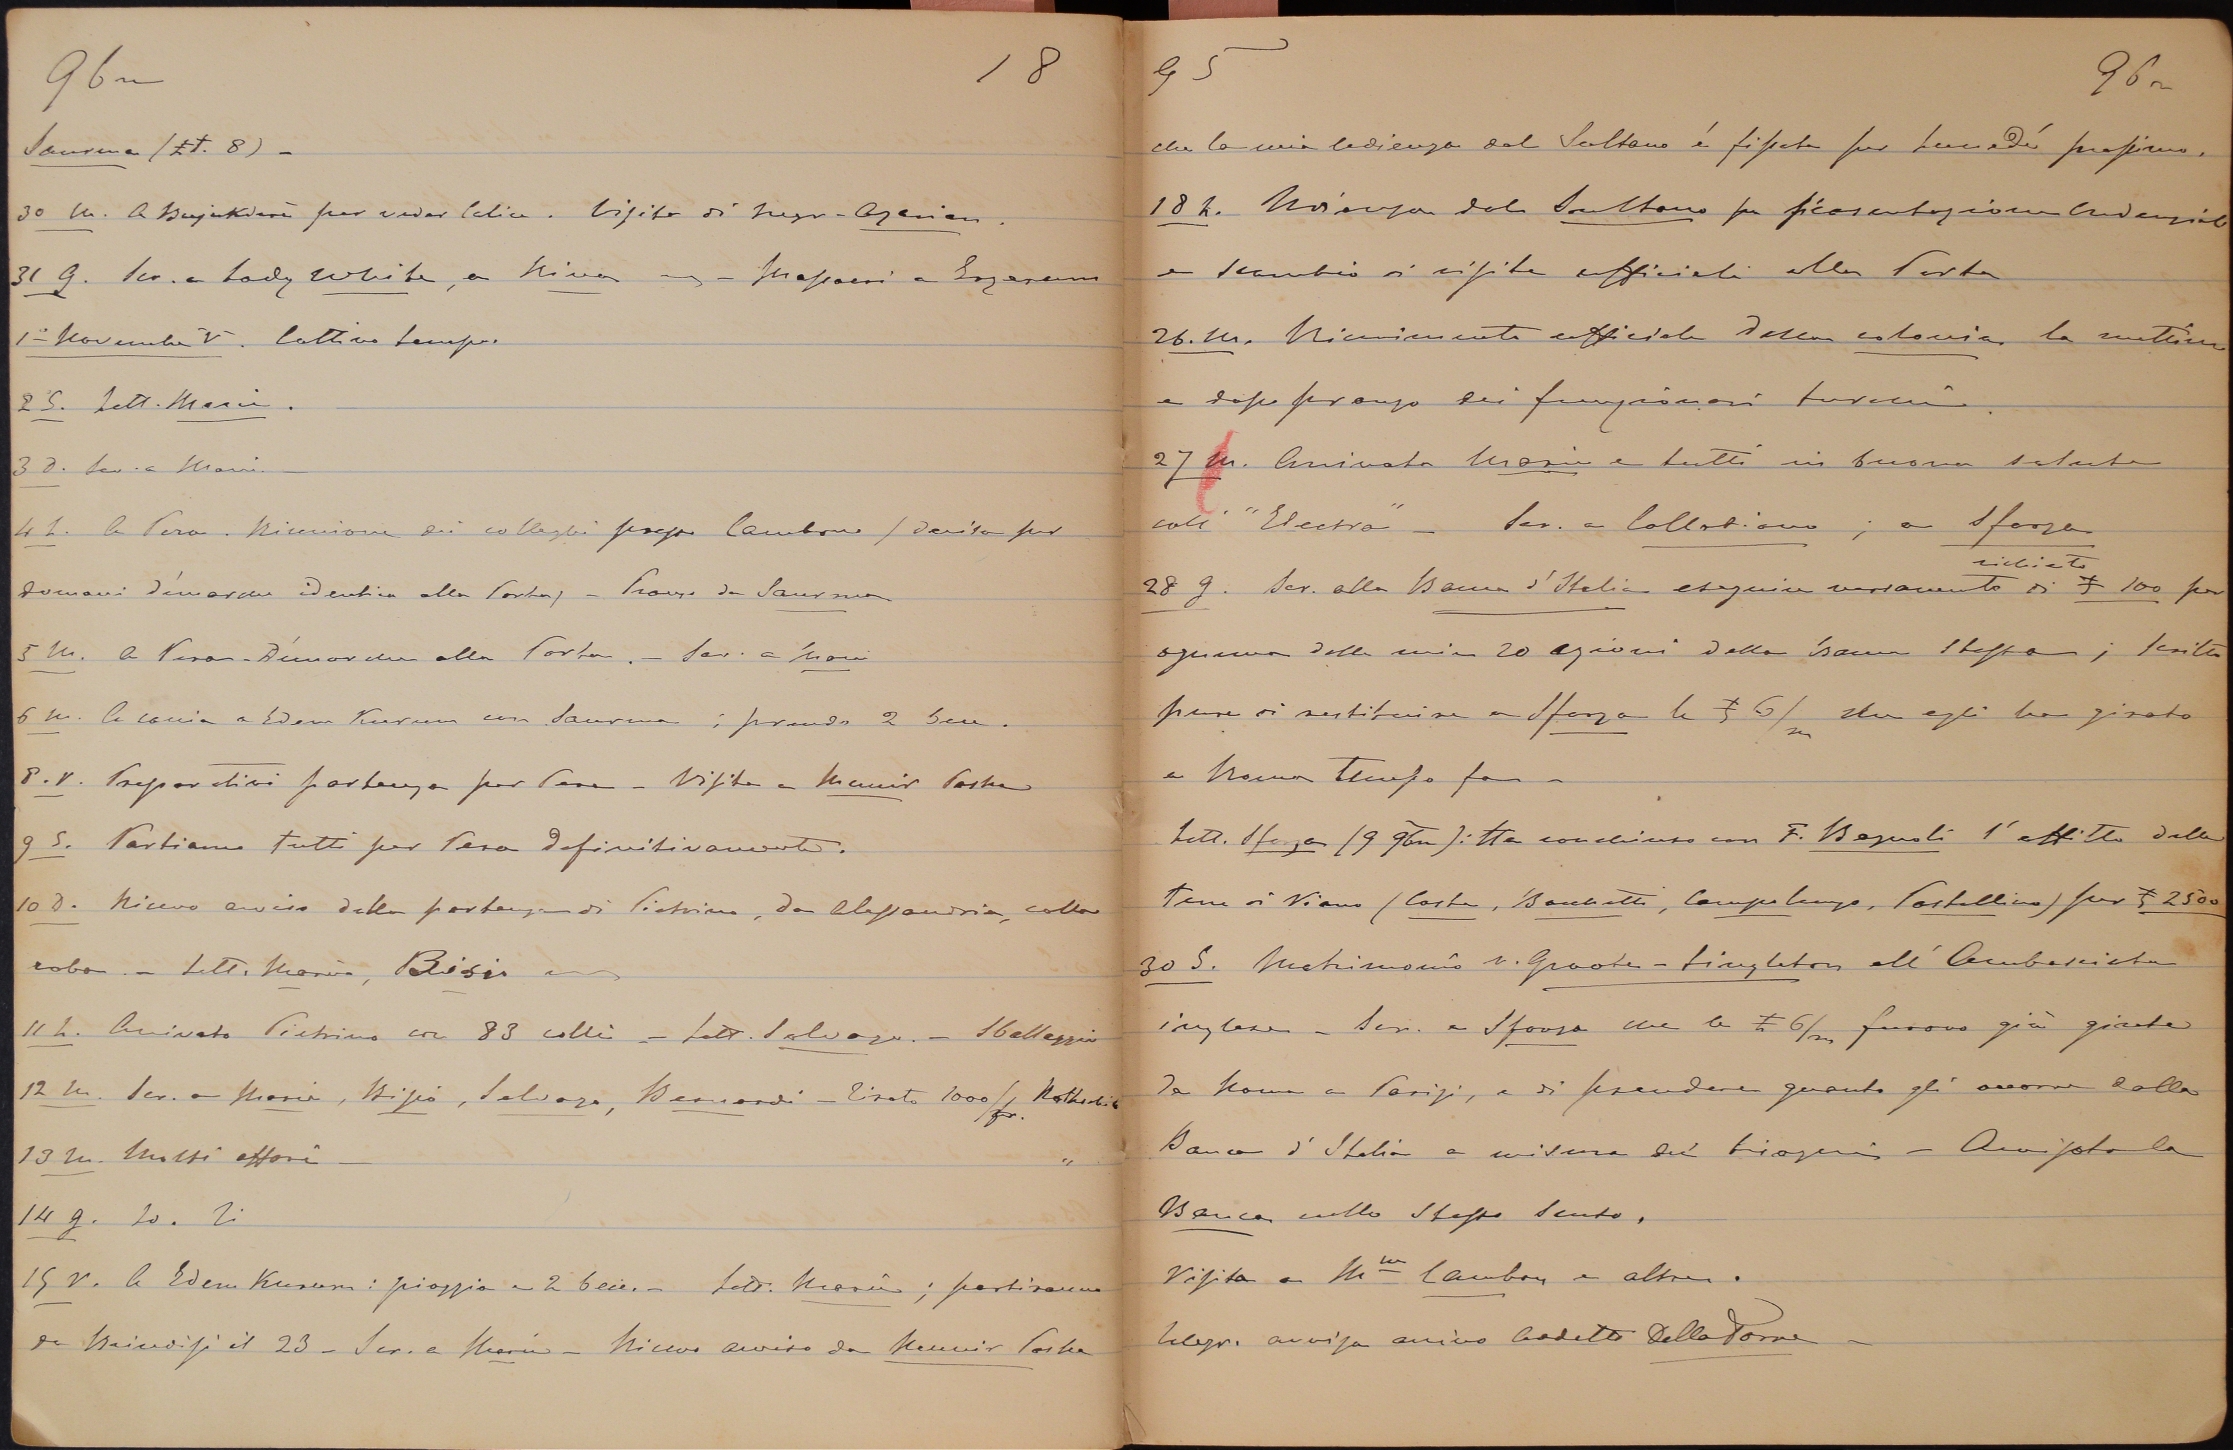 9bre 18
Saurma (£t. 8) -
30 M. A Bujukderè per veder Calice. Visita di Mgr. Azarian.
31 G. Scr. a Lady White, a Nina - Massacri a Erzerum
1° Novembre V. Cattivo tempo.
2 S. Lett. Maria.
3 D. Scr. a Maria -
4 L. A Pera. Riunione dei colleghi presso Cambon (decisa per
domani démarche identica alla Porta) - Pranzo da Saurma
5 M. A Pera - Démarche alla Porta. - Scr. a Maria
6 M. A caccia a Edem Kurum con Saurma ; prendo 2 becc.
8. V. Preparativi partenza per Pera - Visita a Munir Pasha
9 S. Partiamo tutti per Pera definitivamente.
10 D. Ricevo avviso della partenza di Pietrino, da Alessandria, colla
roba. - Lett. Maria, Bisio
11 L. Arrivato Pietrino con 83 colli - Lett. Salvago. - Sballaggio
12 M. Scr. a Maria, Bisio, Salvago, Bernardi - Tirato 1000/fr.
13 M. Molti affari - "
14 G. Id. Id
15 V. A Edem Kurum : pioggia e 2 becc. - Lett. Maria ; partiranno
da Brindisi il 23 - Scr. a Maria - Ricevo avviso da Munir Pasha
95 9bre
che la mia udienza dal Sultano é fissata per lunedì prossimo.
18 L. Udienza dal Sultano per presentazione credenziali
e scambio di visite ufficiali alla Porta
26. M. Ricevimento ufficiale della colonia la mattina
e dopo pranzo dei funzionari turchi.
27 M. Arrivata Maria e tutti in buona salute
coll' "Electra" - Scr. a Collobiano ; a Sforza
richiesto
28 G. Scr. alla Banca d'Italia eseguire versamento di £ 100 per
ognuna delle mie 20 azioni della Banca stessa ; scritto
pure di restituire a Sforza le £ 6/m che egli ha girato
a Roma tempo fa -
Lett. Sforza (9 9bre) : Ha conchiuso con F. Bagnoli l'affitto delle
terre di Viano (Costa, Banchetti, Campolungo, Pastellino) per £ 2500
30 S. Matrimonio v. Groote - Singleton all' Ambasciata
inglese - Scr. a Sforza che le £ 6/m furono già girate
da Roma a Parigi, e di prendere quanto gli occorre dalla
Banca d'Italia a misura dei bisogni - Avvisata la
Banca nello stesso senso.
Visita a Mme Cambon e altre.
Telegr. avvisa arrivo Cadetto Della Torre -